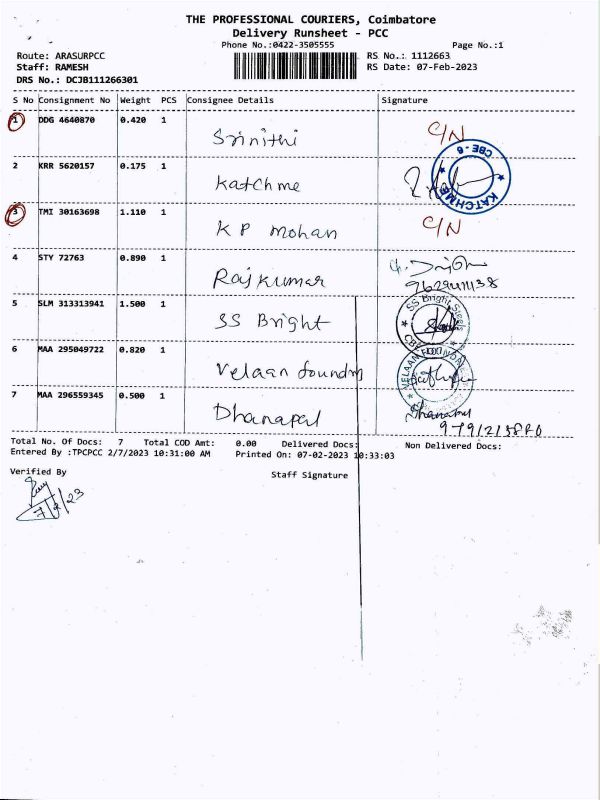 THE PROFESSIONAL COURIERS, Coimbatore
Delivery Runsheet - PCC
Phone No.:0422-3505555 Page No.:1
Route: ARASURPCC RS No.: 1112663
Staff: RAMESH RS Date: 07-Feb-2023
DRS No.: DCJB111266301
S No Consignment No Weight PCS Consignee Details Signature
1 DDG 4640870 0.420 1 Srinithi C/N
2 KRR 5620157 0.175 1 Katchme KATCHME CBE - 6
3 TMI 30163698 1.110 1 K P Mohan C/N
4 STY 72763 0.890 1 Rajkumar
5 SLM 313313941 1.500 1 SS Bright SS Bright Steels
6 MAA 295049722 0.820 1 Velaan foundry VELAAN FOUNDRY
7 MAA 296559345 0.500 1 Dhanapal Dhanapal
Total No. Of Docs: 7 Total COD Amt: 0.00 Delivered Docs: Non Delivered Docs:
Entered By :TPCPCC 2/7/2023 10:31:00 AM Printed On: 07-02-2023 10:33:03
Verified By Staff Signature
7/2/23